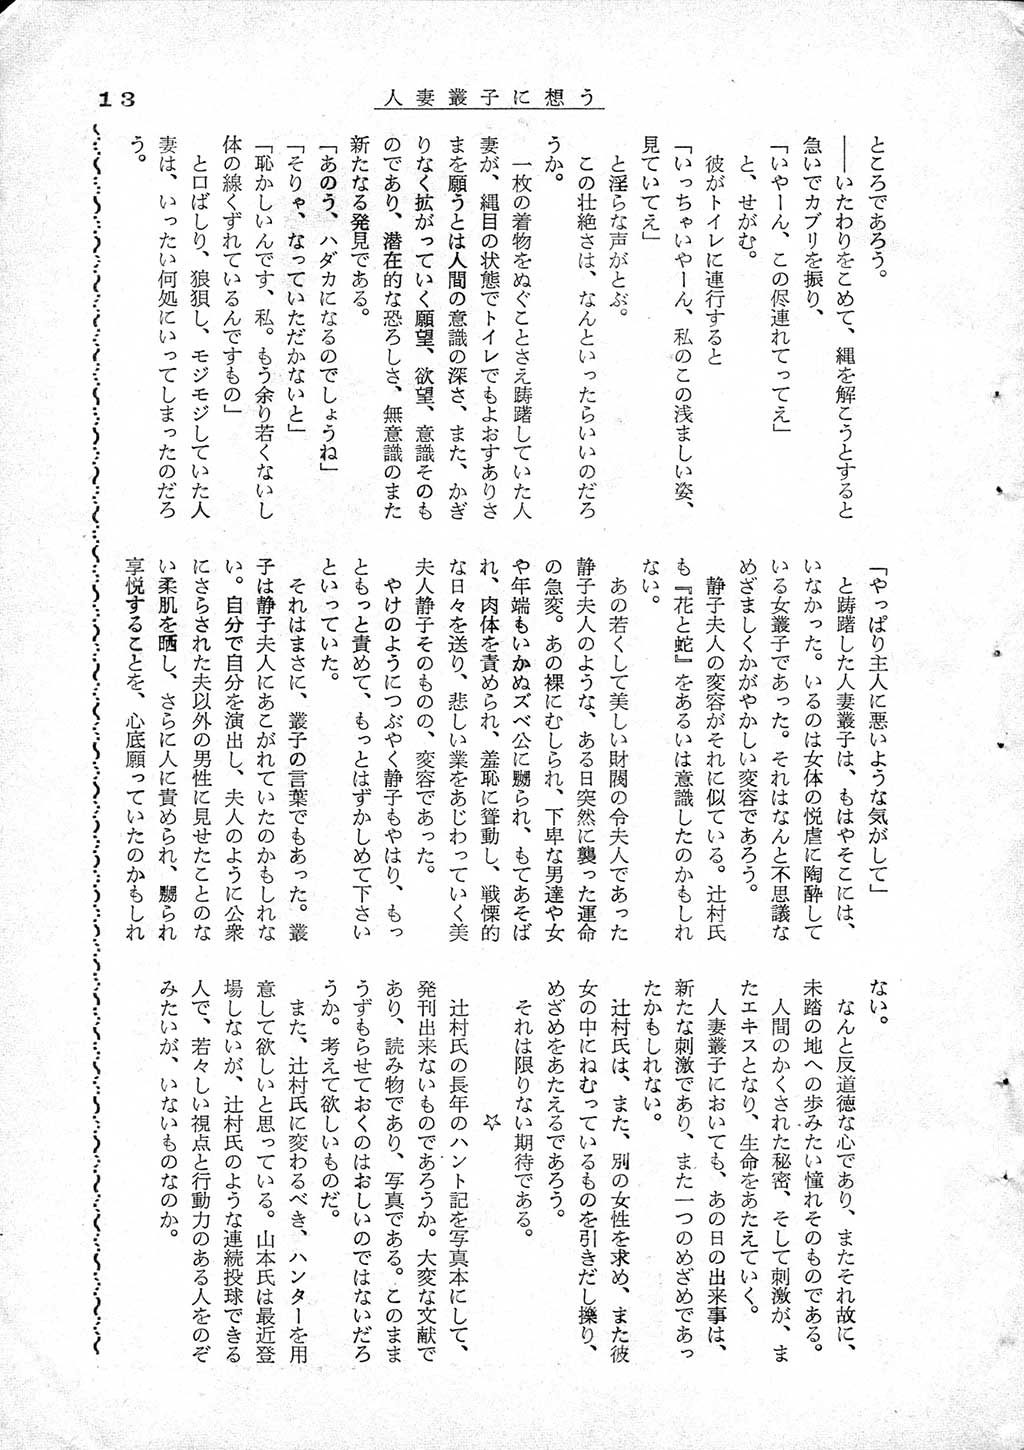 13
人妻叢子に想う
ところであろう。
――いたわりをこめて、縄を解こうとすると
急いでカブリを振り、
「いやーん、この侭連れてってえ」
と、せがむ。
彼がトイレに連行すると
「いっちゃいやーん、私のこの浅ましい姿、
見ていてえ」
と淫らな声がとぶ。
この壮絶さは、なんといったらいいのだろ
うか。
一枚の着物をぬぐことさえ躊躇していた人
妻が、縄目の状態でトイレでもよおすありさ
まを願うとは人間の意識の深さ、また、かぎ
りなく拡がっていく願望、欲望、意識そのも
のであり、潜在的な恐ろしさ、無意識のまた
新たなる発見である。
「あのう、ハダカになるのでしょうね」
「そりゃ、なっていただかないと」
「恥かしいんです、私。もう余り若くないし
体の線くずれているんですもの」
と口ばしり、狼狽し、モジモジしていた人
妻は、いったい何処にいってしまったのだろ
う。
「やっぱり主人に悪いような気がして」
と躊躇した人妻叢子は、もはやそこには、
いなかった。いるのは女体の悦虐に陶酔して
いる女叢子であった。それはなんと不思議な
めざましくかがやかしい変容であろう。
静子夫人の変容がそれに似ている。辻村氏
も『花と蛇』をあるいは意識したのかもしれ
ない。
あの若くして美しい財閥の令夫人であった
静子夫人のような、ある日突然に襲った運命
の急変。あの裸にむしられ、下卑な男達や女
や年端もいかぬズベ公に嬲られ、もてあそば
れ、肉体を責められ、羞恥に聳動し、戦慄的
な日々を送り、悲しい業をあじわっていく美
夫人静子そのものの、変容であった。
やけのようにつぶやく静子もやはり、もっ
ともっと責めて、もっとはずかしめて下さい
といっていた。
それはまさに、叢子の言葉でもあった。叢
子は静子夫人にあこがれていたのかもしれな
い。自分で自分を演出し、夫人のように公衆
にさらされた夫以外の男性に見せたことのな
い柔肌を晒し、さらに人に責められ、嬲られ
享悦することを、心底願っていたのかもしれ
ない。
なんと反道徳な心であり、またそれ故に、
未踏の地への歩みたい憧れそのものである。
人間のかくされた秘密、そして刺激が、ま
たエキスとなり、生命をあたえていく。
人妻叢子においても、あの日の出来事は、
新たな刺激であり、また一つのめざめであっ
たかもしれない。
辻村氏は、また、別の女性を求め、また彼
女の中にねむっているものを引きだし擽り、
めざめをあたえるであろう。
それは限りない期待である。
☆
辻村氏の長年のハント記を写真本にして、
発刊出来ないものであろうか。大変な文献で
あり、読み物であり、写真である。このまま
うずもらせておくのはおしいのではないだろ
うか。考えて欲しいものだ。
また、辻村氏に変わるべき、ハンターを用
意して欲しいと思っている。山本氏は最近登
場しないが、辻村氏のような連続投球できる
人で、若々しい視点と行動力のある人をのぞ
みたいが、いないものなのか。